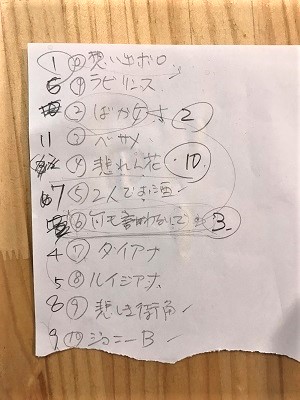 1 ⓪ 想い出ボロ
6 ① ラビリンス
② ばかクボ ②
11 ③ ベサメ
④ 悲れん花 ・10.
7 ⑤ 2人でお酒 ✓
⑥ 何も言わないで 3
4 ⑦ ダイアナ
5 ⑧ ルイジアナ
8 ⑨ 悲しき街角 ✓
9 ⑩ ジョニーB ✓